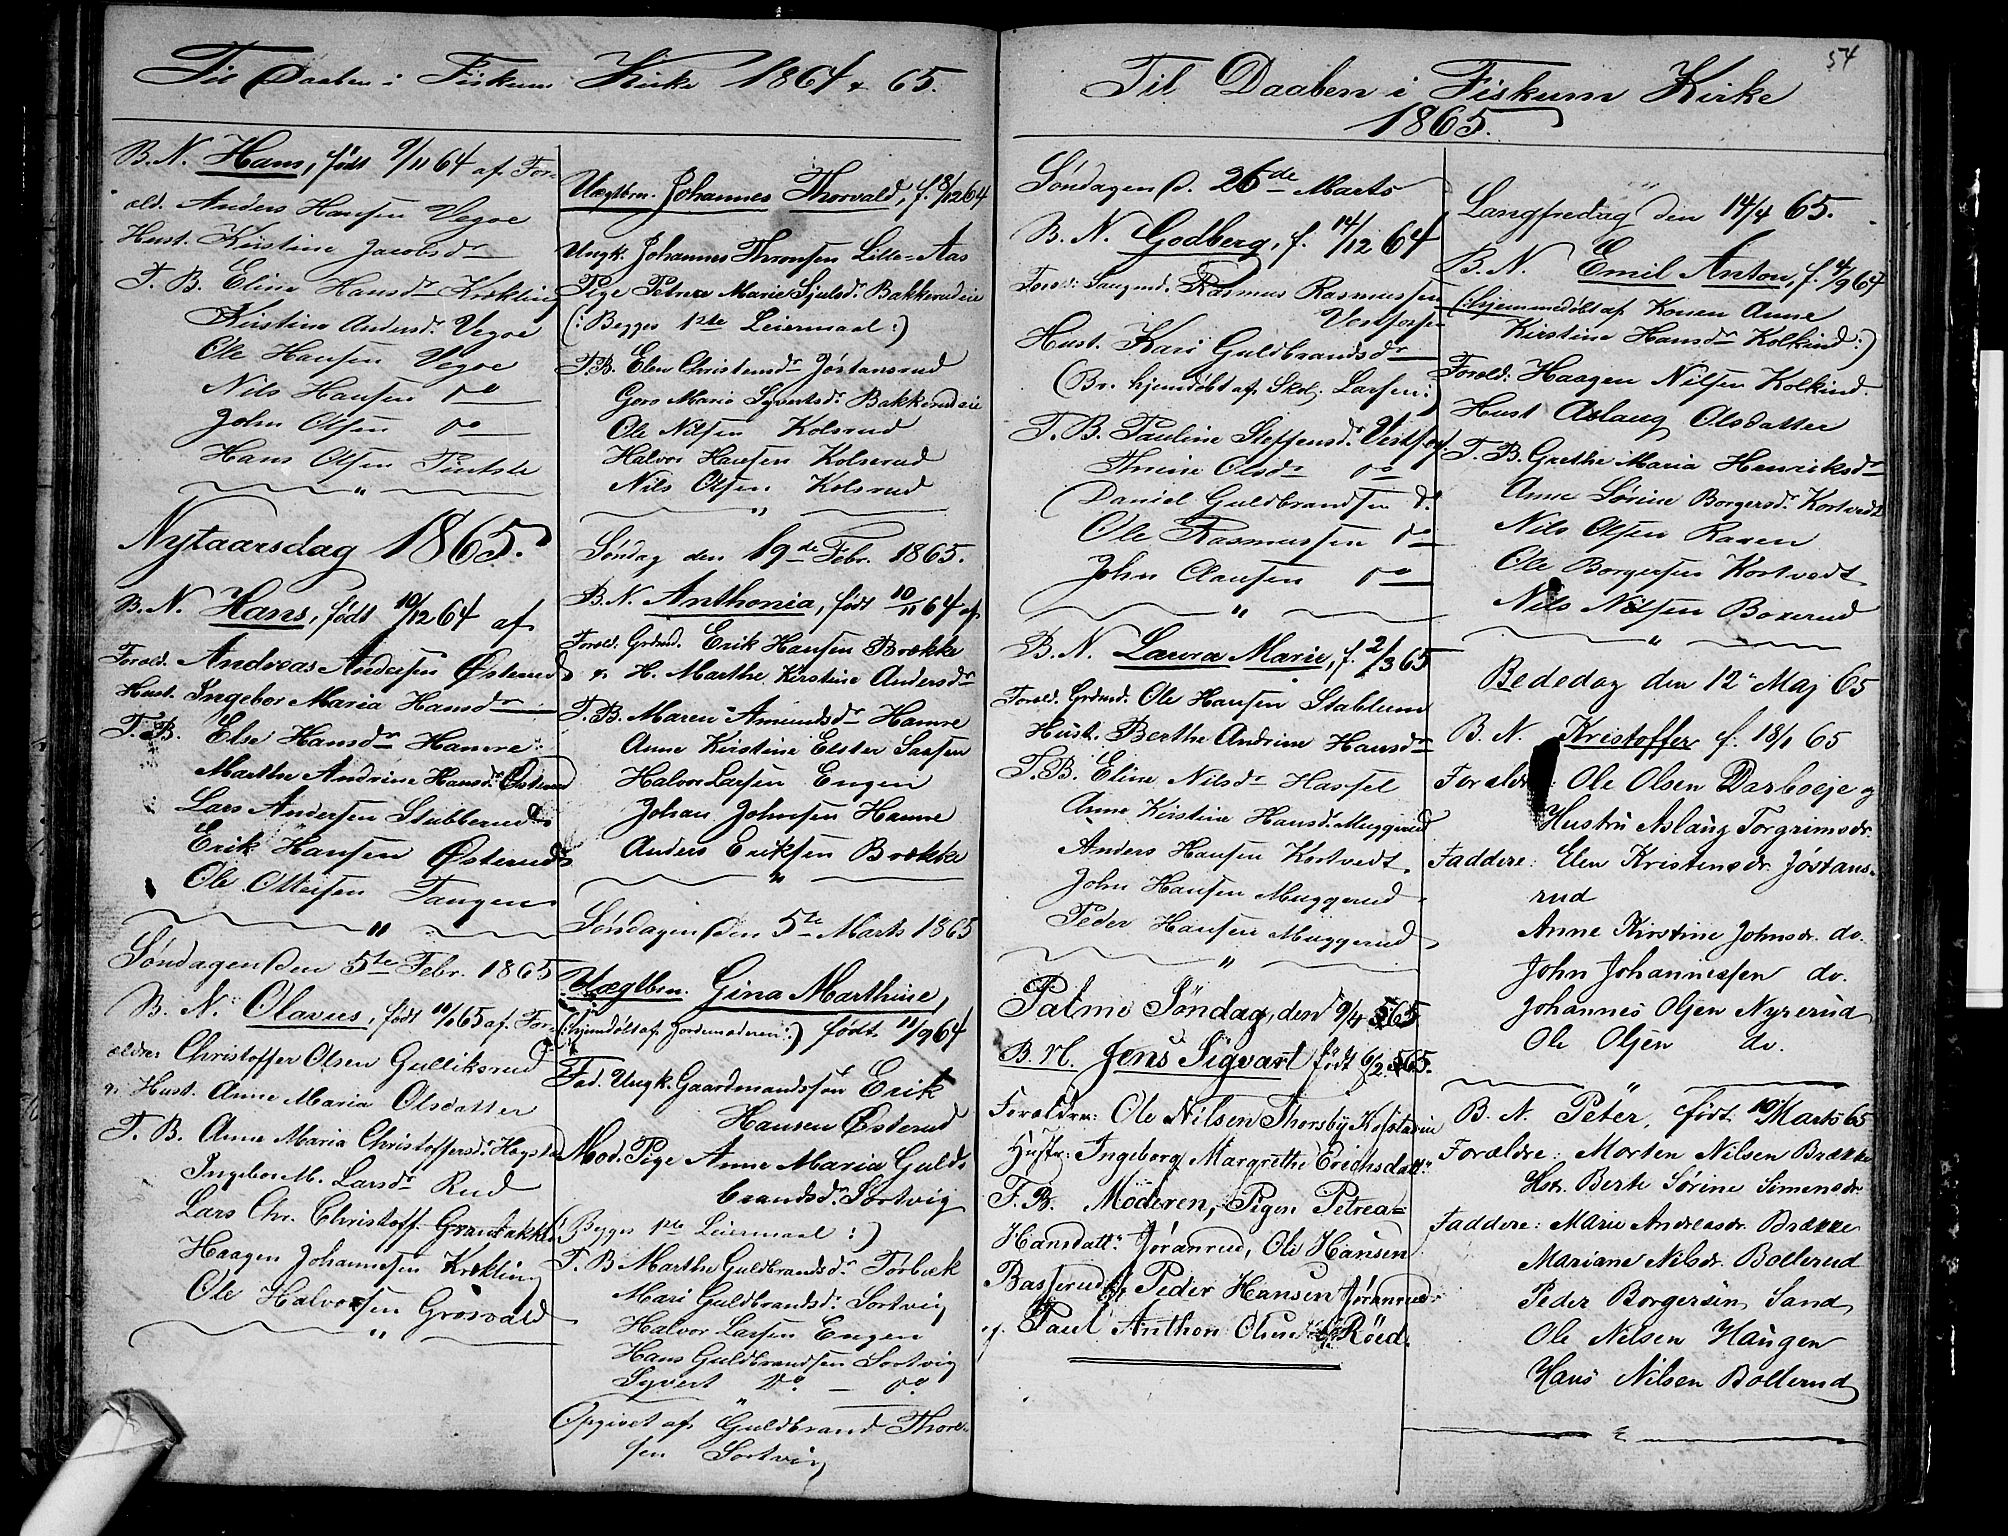 Til Daaben i Fiskum Kirke 1864 & 65.
B. N. Hans, født 9/11 64 af For-
æld. Anders Hansen Vegoe
Hust. Kirstine Jacobsdr
F. B. Eline Hansdr Krekling
Kirstine Andersdr. Vegoe
Ole Hansen Vegoe
Nils Hansen do
John Olsen do
Hans Olsen
"
Nytaarsdag 1865.
B. N. Hans, født 10/12 64 af
Foræld. Andreas Andersen Østerud
Hust. Ingebor Maria Hansdr
F. B. Else Hansdr Hamre
Marthe Andrine Hansdr. Østerud
Lars Andersen Stubberud
Erik Hansen Østerud
Ole Ottersen Tangen
"
Søndagen den 5te Febr. 1865
B. N. Olavus, født 11/1 65 af For-
ældre Christoffer Olsen Gulliksrud
& Hust. Anne Maria Olsdatter
F. B. Anne Maria Christoffersdr.
Ingebor M. Larsdr Rud
Lars Chr. Christoff. Granbakke
Haagen Johannesen Krekling
Ole Halvorsen Grosvald
"
Uægtbrn. Johannes Thorvald, f. 8/12 64
Ungk. Johannes Thronsen Lille-Aas
Pige Petrea Marie Sjulsdr. Bakkerudeie
(: Begges 1ste Leiermaal :)
F. B. Elen Christensdr Jøstansrud
Goro Marie Syvertsdr. Bakkerudeie
Ole Nilsen Kolsrud
Halvor Hansen Kolsrud
Nils Olsen Kolsrud
"
Søndag den 19de Febr. 1865.
B. N. Anthonia, født 10/11 64 af
Foræld. Grdmd. Erik Hansen Brække
& H. Marthe Kirstine Andersdr
F. B. Maren Amundsdr Hamre
Anne Kirstine Elster Larsen
Halvor Larsen Engen
Johan Johnsen Hamre
Anders Eriksen Brække
"
Søndagen den 5te Marts 1865
Uægtbrn. Gina Marthine,
(: hjemdøbt af Jordemoderen :) født 11/9 64
Fad. Ungk. Gaardmandssøn Erik
Hansen Østerud
Mod. Pige Anne Maria Guld-
brandsdr. Sortvig
(: Begges 1ste Leiermaal :)
F. B. Marthe Guldbrandsdr. Torbæk
Mari Guldbrandsdr. Sortvig
Halvor Larsen Engen
Hans Guldbrandsen Sortvig
Syvert do — do
"
Opgivet af Guldbrand Thore-
sen Sortvig
54
Til Daaben i Fiskum Kirke
1865.
Søndagen d. 26de Marts
B. N. Godberg, f. 14/12 64
Foræld: Saugmd. Rasmus Rasmussen
Vestfosen
Hust. Kari Guldbrandsdr
(Br. hjemdøbt af Skol. Larsen :)
F. B. Pauline Steffensdr. Vestfos
Thrine Olsdr do
Daniel Guldbrandsen do
Ole Rasmussen do
John Clausen do
"
B. N. Laura Marie, f. 2/3 65
Foræld. Grdmd. Ole Hansen Stablum
Hust. Berthe Andrine Hansdr
F. B. Eline Nilsdr Hassel
Anne Kirstine Hansdr. Muggerud
Anders Hansen Kortvedt
John Hansen Muggerud
Peder Hansen Muggerud
"
Palme Søndag, den 9/4 65
B. N. Jens Sigvart født 6/2 65.
Forældre: Ole Nilsen Thorsby
Hustr: Ingeborg Margrethe Erichsdattr
F. B. Moderen, Pigen Petrea
Hansdattr Jøranrud, Ole Hansen
Basserud, Peder Hansen Jøranrud
& Paul Anthon Olsen Røed.
Langfredag den 14/4 65.
B. N. Emil Anton, f. 4/9 64
(: hjemmedøbt af Konen Anne
Kirstine Hansdr Kolkind :)
Foræld: Haagen Nilsen Kolkind
Hust Aslaug Olsdatter
F. B. Grethe Maria Henriksdr
Anne Sørine Borgersdr. Kortvedt
Nils Olsen Raaen
Ole Borgersen Kortvedt
Nils Nilsen Boxerud
"
Bededag den 12 Maj 65
B. N. Kristoffer f. 18/1 65
Forældre: Ole Olsen Darboeje og
Hustru Aslaug Torgrimsdr.
Faddere: Elen Kristensdr. Jøstans-
rud
Anne Kirstine Johnsdr. do.
John Johannessen do.
Johannes Olsen Nyrerud
Ole Olsen do.
B. N. Peter, født 10 Marts 65
Forældre: Morten Nilsen Brække
Hst. Berte Sørine Simensdr
Faddere: Marie Andreasdr. Brække
Mariane Nilsdr. Bollerud
Peder Borgersen Sand
Ole Nilsen Haugen
Hans Nilsen Bollerud